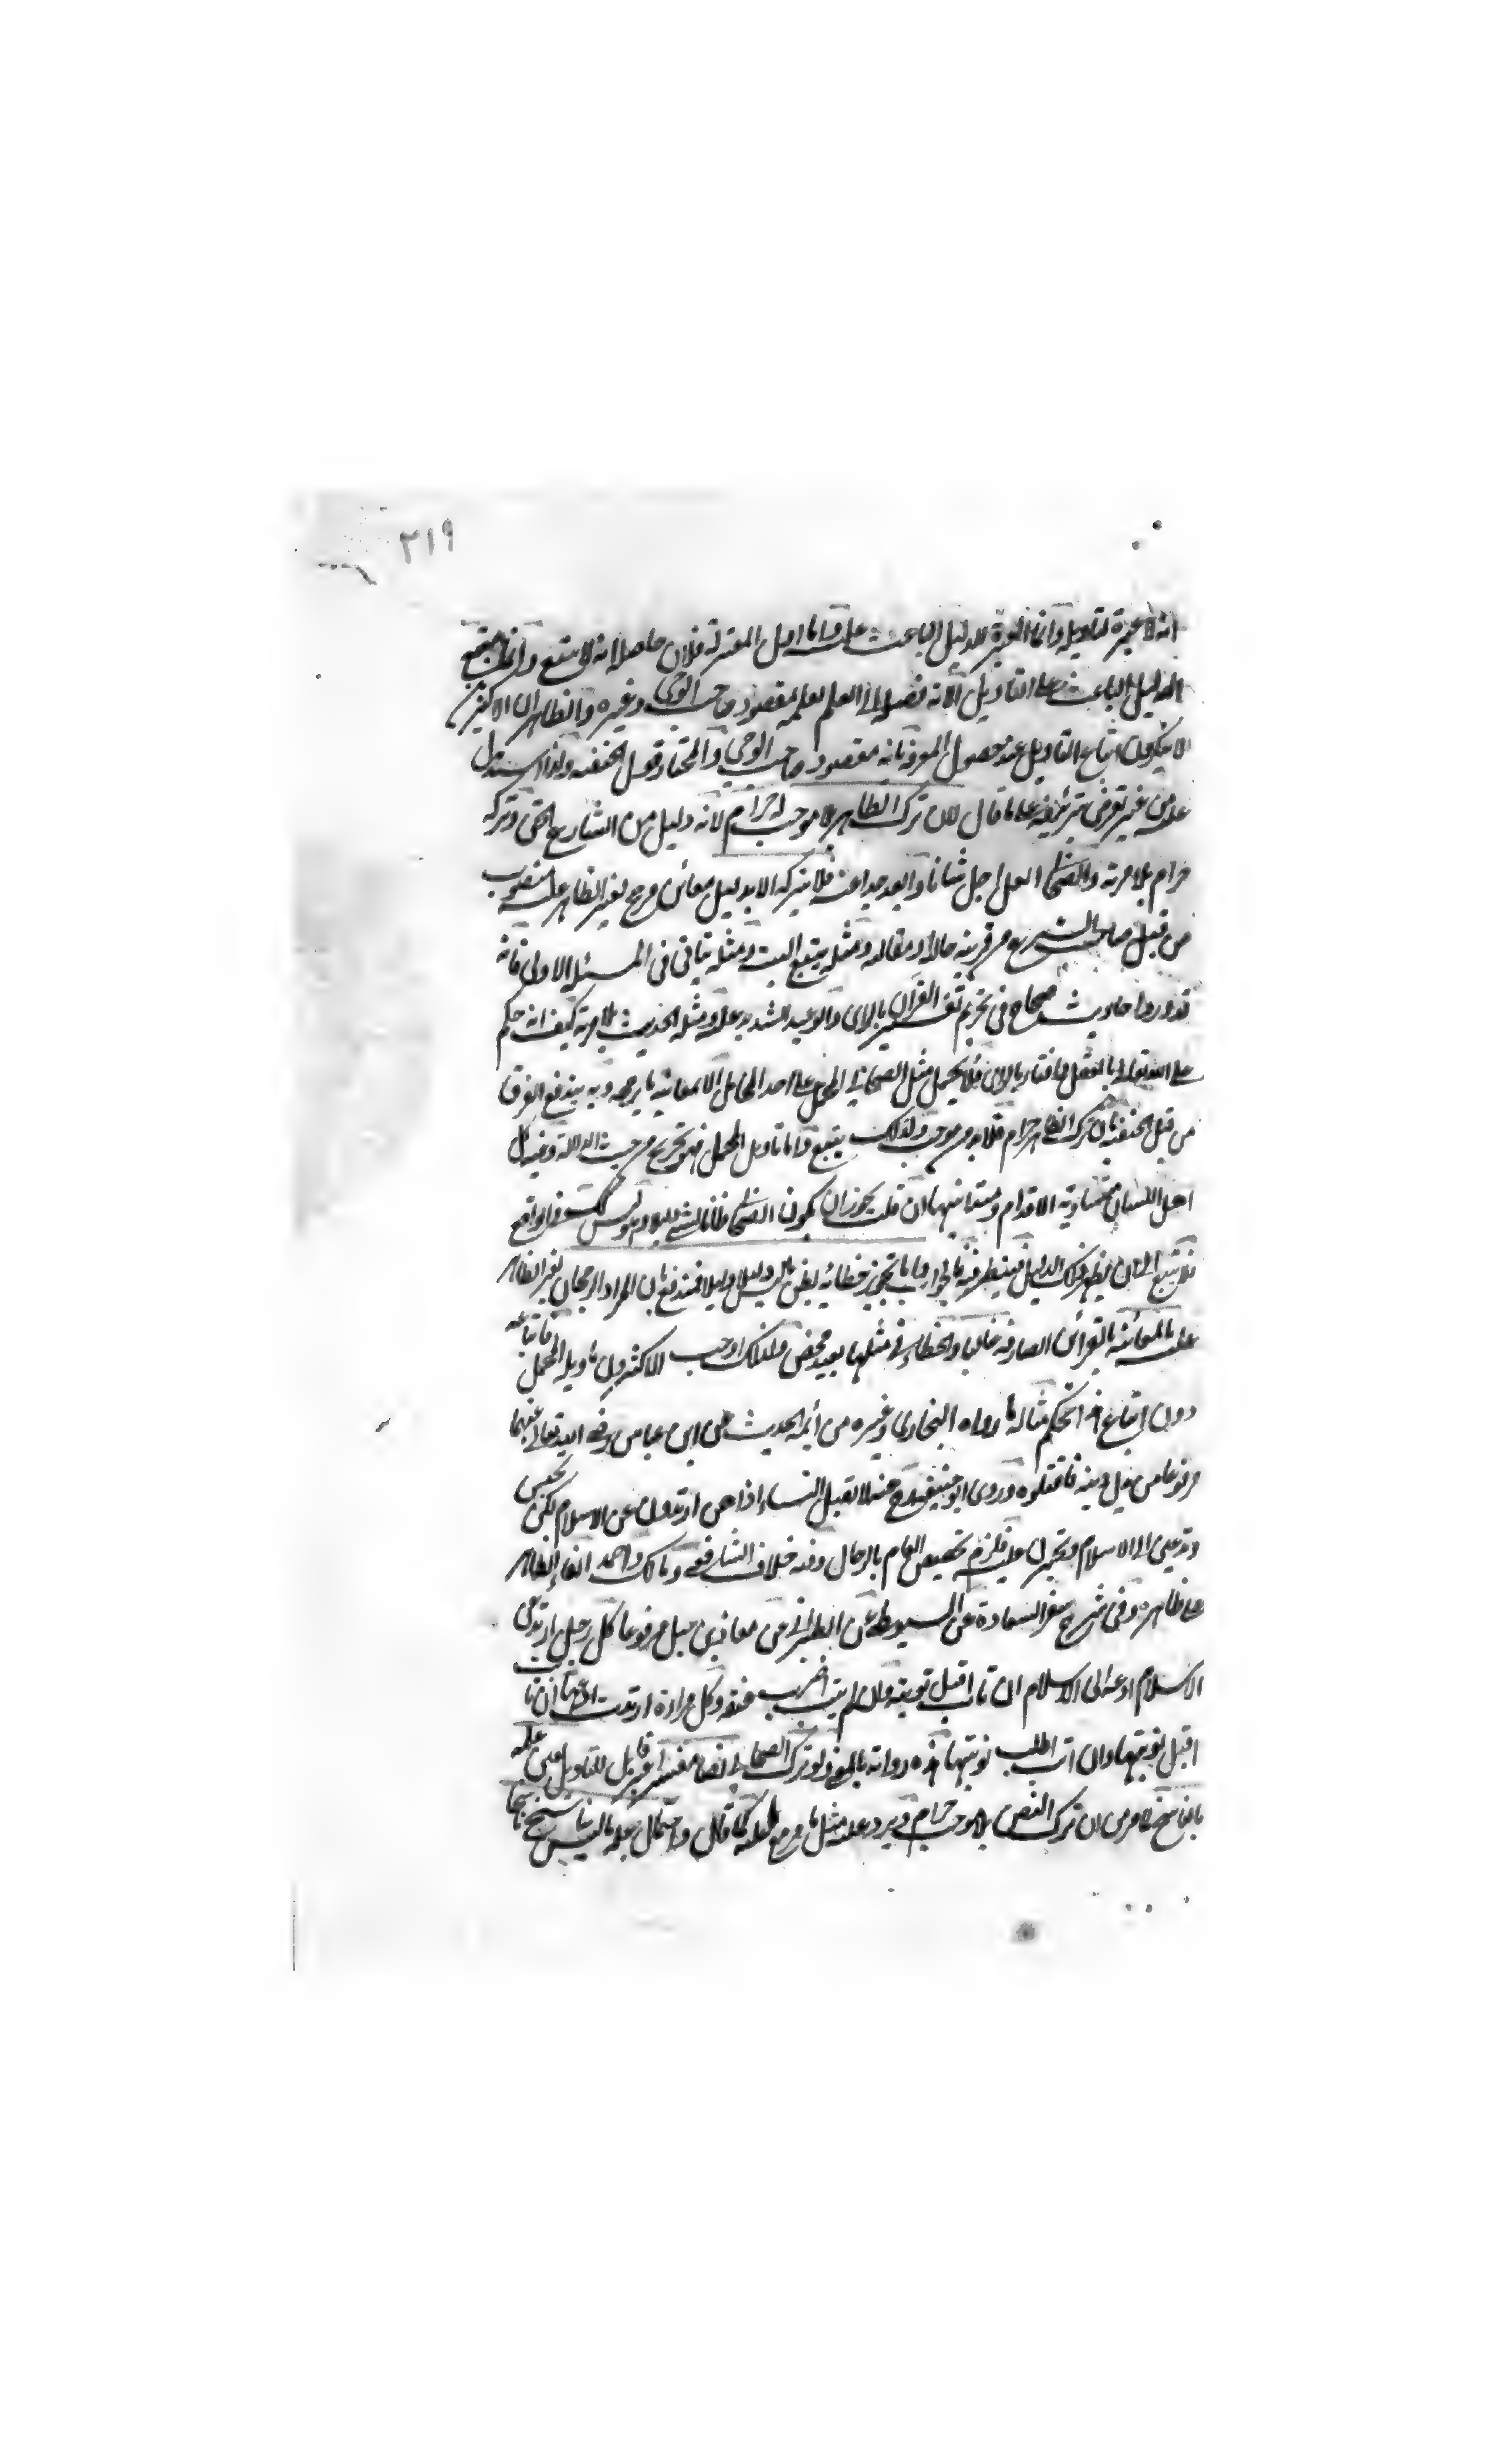 ٢١٩
انه لا عبرة لتاويله وانما العبرة للدليل الباعث عليه واما اول المعتزلة فلان حاصله انه لا يتبع وانما يتبع
الدليل الباعث على التاويل الا انه العلم بعلمه بمقصود صاحب الوحي وغيره والظاهر ان الاكثرين
لا ينكرون اتباع التاويل عند حصول المعرفة بانه مقصود صاحب الوحي والمختار قول الحنفية ولذا استدل
عليه من غير تعرض على ما قال لان ترك الظاهر بلا موجب حرام لانه دليل من الشارع الحق وتركه
حرام بلا مرية والصحابي العدل اجل شانا وابعد جدا عنه فلا يتركه الا بدليل معائن مرجح لغير الظاهر عليه منصوب
من قبل صاحب الشرع من قرينة حالية او مقالية ومثله يتبع البتة ومثله ياتي في المسئلة الاولى فانه
قد ورد احاديث صحاح في تحريم تفسير القرآن بالراى والوعيد الشديد عليه ومثله الحديث بلا مرية كيف انه حكم
على الله تعالى بالراى فلا يحمل مثل الصحابي المجمل على احد المحامل الا لمعائنة ما يرجحه وبه يندفع الفرق
من قبل الحنفية بان ترك الظاهر حرام فلا بد من موجب ولذلك يتبع واما تاويل المجمل فهو ترجيح من حيث الدلالة وفيه كل
اهل اللسان متساوية الاقدام ان قلت يجوز ان يكون الصحابي ظانا لشئ دليلا وهو ليس كذلك في الواقع
فلا يتبع الى ان يظهر ذلك الدليل فينظر فيه فالجواب بان تجويز خطائه بظن ما ليس دليلا دليلا فمندفع بان المراد الرجحان لغير الظاهر
عليه بالمعائنة بالقرائن الصارفة غالبا والخطاء في مثلها بعيد محض ولذلك اوجب الاكثرون تاويله المجمل فاتباعه
دون اتباع مثاله ما رواه البخاري وغيره من أئمة الحديث عن ابن عباس رضي الله تعالى عنهما
مرفوعا من بدل دينه فاقتلوه وروى ابو حنيفة رح عنه لا تقتل النساء اذا هن ارتددن عن الاسلام لكن يحبسن
وتدعين الى الاسلام وتجبرن عليه فلزم تخصيص العام بالرجال وفيه خلاف الشافعي ومالك واحمد ابقاء للظاهر
على ظاهره وفي شرح سفر السعادة عن السيوطي عن الطبراني عن معاذ بن جبل مرفوعا كل رجل ارتد عن
الاسلام ادعه الى الاسلام ان تاب اقبل توبته وان لم يتب اضرب عنقه وكل مراءة ارتدت ادعها ان تابت
اقبل توبتها وان ابت اطلب توبتها هذه رواية بالمعنى ولو ترك الصحابي نصا مفسرا غير قابل للتاويل تعين علمه
بالناسخ لما مر من ان ترك النص بلا موجب حرام ويرد عليه مثل ما مر مع كما قال واحتمال جعله ما ليس بناسخ ناسخا